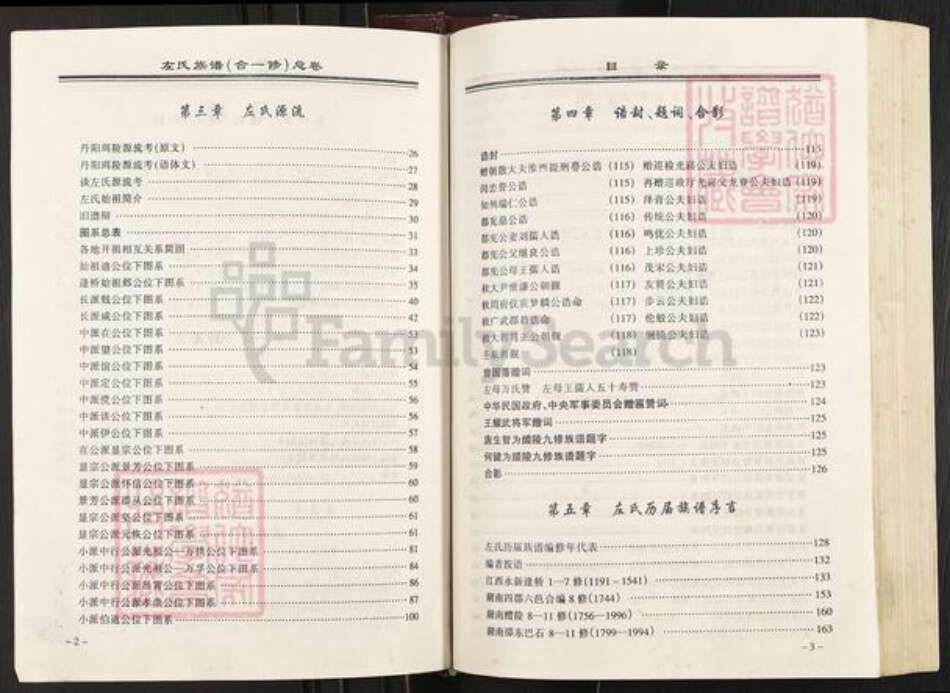 左氏族谱(合一修)总卷
第三章 左氏源流
丹阳珥陵源流考(原文) 26
丹阳珥陵源流考(语体文) 27
谈左氏源流考 28
左氏始祖简介 29
旧谱辩 30
图系总表 31
各地开祖相互关系简图 33
始祖迪公位下图系 34
逢桥始祖郯公位下图系 35
长派戟公位下图系 40
长派威公位下图系 42
中派在公位下图系 53
中派望公位下图系 53
中派谊公位下图系 54
中派定公位下图系 55
中派傥公位下图系 56
中派谈公位下图系 56
中派伊公位下图系 57
在公派显宗公位下图系 58
显宗公派景芳公位下图系 59
显宗公派怀信公位下图系 60
景芳公派邵从公位下图系 60
显宗公派坚公位下图系 61
显宗公派元恢公位下图系 61
小派中行公派光照公—万拱公位下图系 81
小派中行公派光祖公—万孚公位下图系 84
小派中行公派昌霄公位下图系 86
小派中行公派孝康公位下图系 87
小派伯通公位下图系 100
－2－
目 录
第四章 诰封、题词、合影
诰封 115
赠朝散大夫淮西提刑眷公诰 (115) 赠巡检光福公夫妇诰 (119)
闵忠眷公诰 (115) 再赠巡政厅光福父龙眷公夫妇诰 (119)
知州瑞仁公诰 (115) 泽青公夫妇诰 (119)
都宪鼎公诰 (116) 传统公夫妇诰 (120)
都宪公妻刘孺人诰 (116) 鸣优公夫妇诰 (120)
都宪公父继良公诰 (116) 上珍公夫妇诰 (120)
都宪公母王孺人诰 (116) 茂宋公夫妇诰 (121)
(117) 友贤公夫妇诰 (121)
(117) 步云公夫妇诰 (122)
(117) 伦般公夫妇诰 (122)
(118) 钢镜公夫妇诰 (123)
(118)
曾国藩赠词 123
左母万氏赞 左母王孺人五十寿赞 123
中华民国政府、中央军事委员会赠瀛赞词 124
王耀武将军赠词 125
唐生智为醴陵九修族谱题字 125
何键为醴陵九修族谱题字 125
合影 126
第五章 左氏历届族谱序言
左氏历届族谱编修年代表 128
编者按语 132
江西永新逢桥 1—7 修(1191－1541) 133
湖南四郡六邑合编 8 修(1744) 153
湖南醴陵 8—11 修(1756—1996) 160
湖南邵东巴石 8—11 修(1799—1994) 163
－3－
FamilySearch